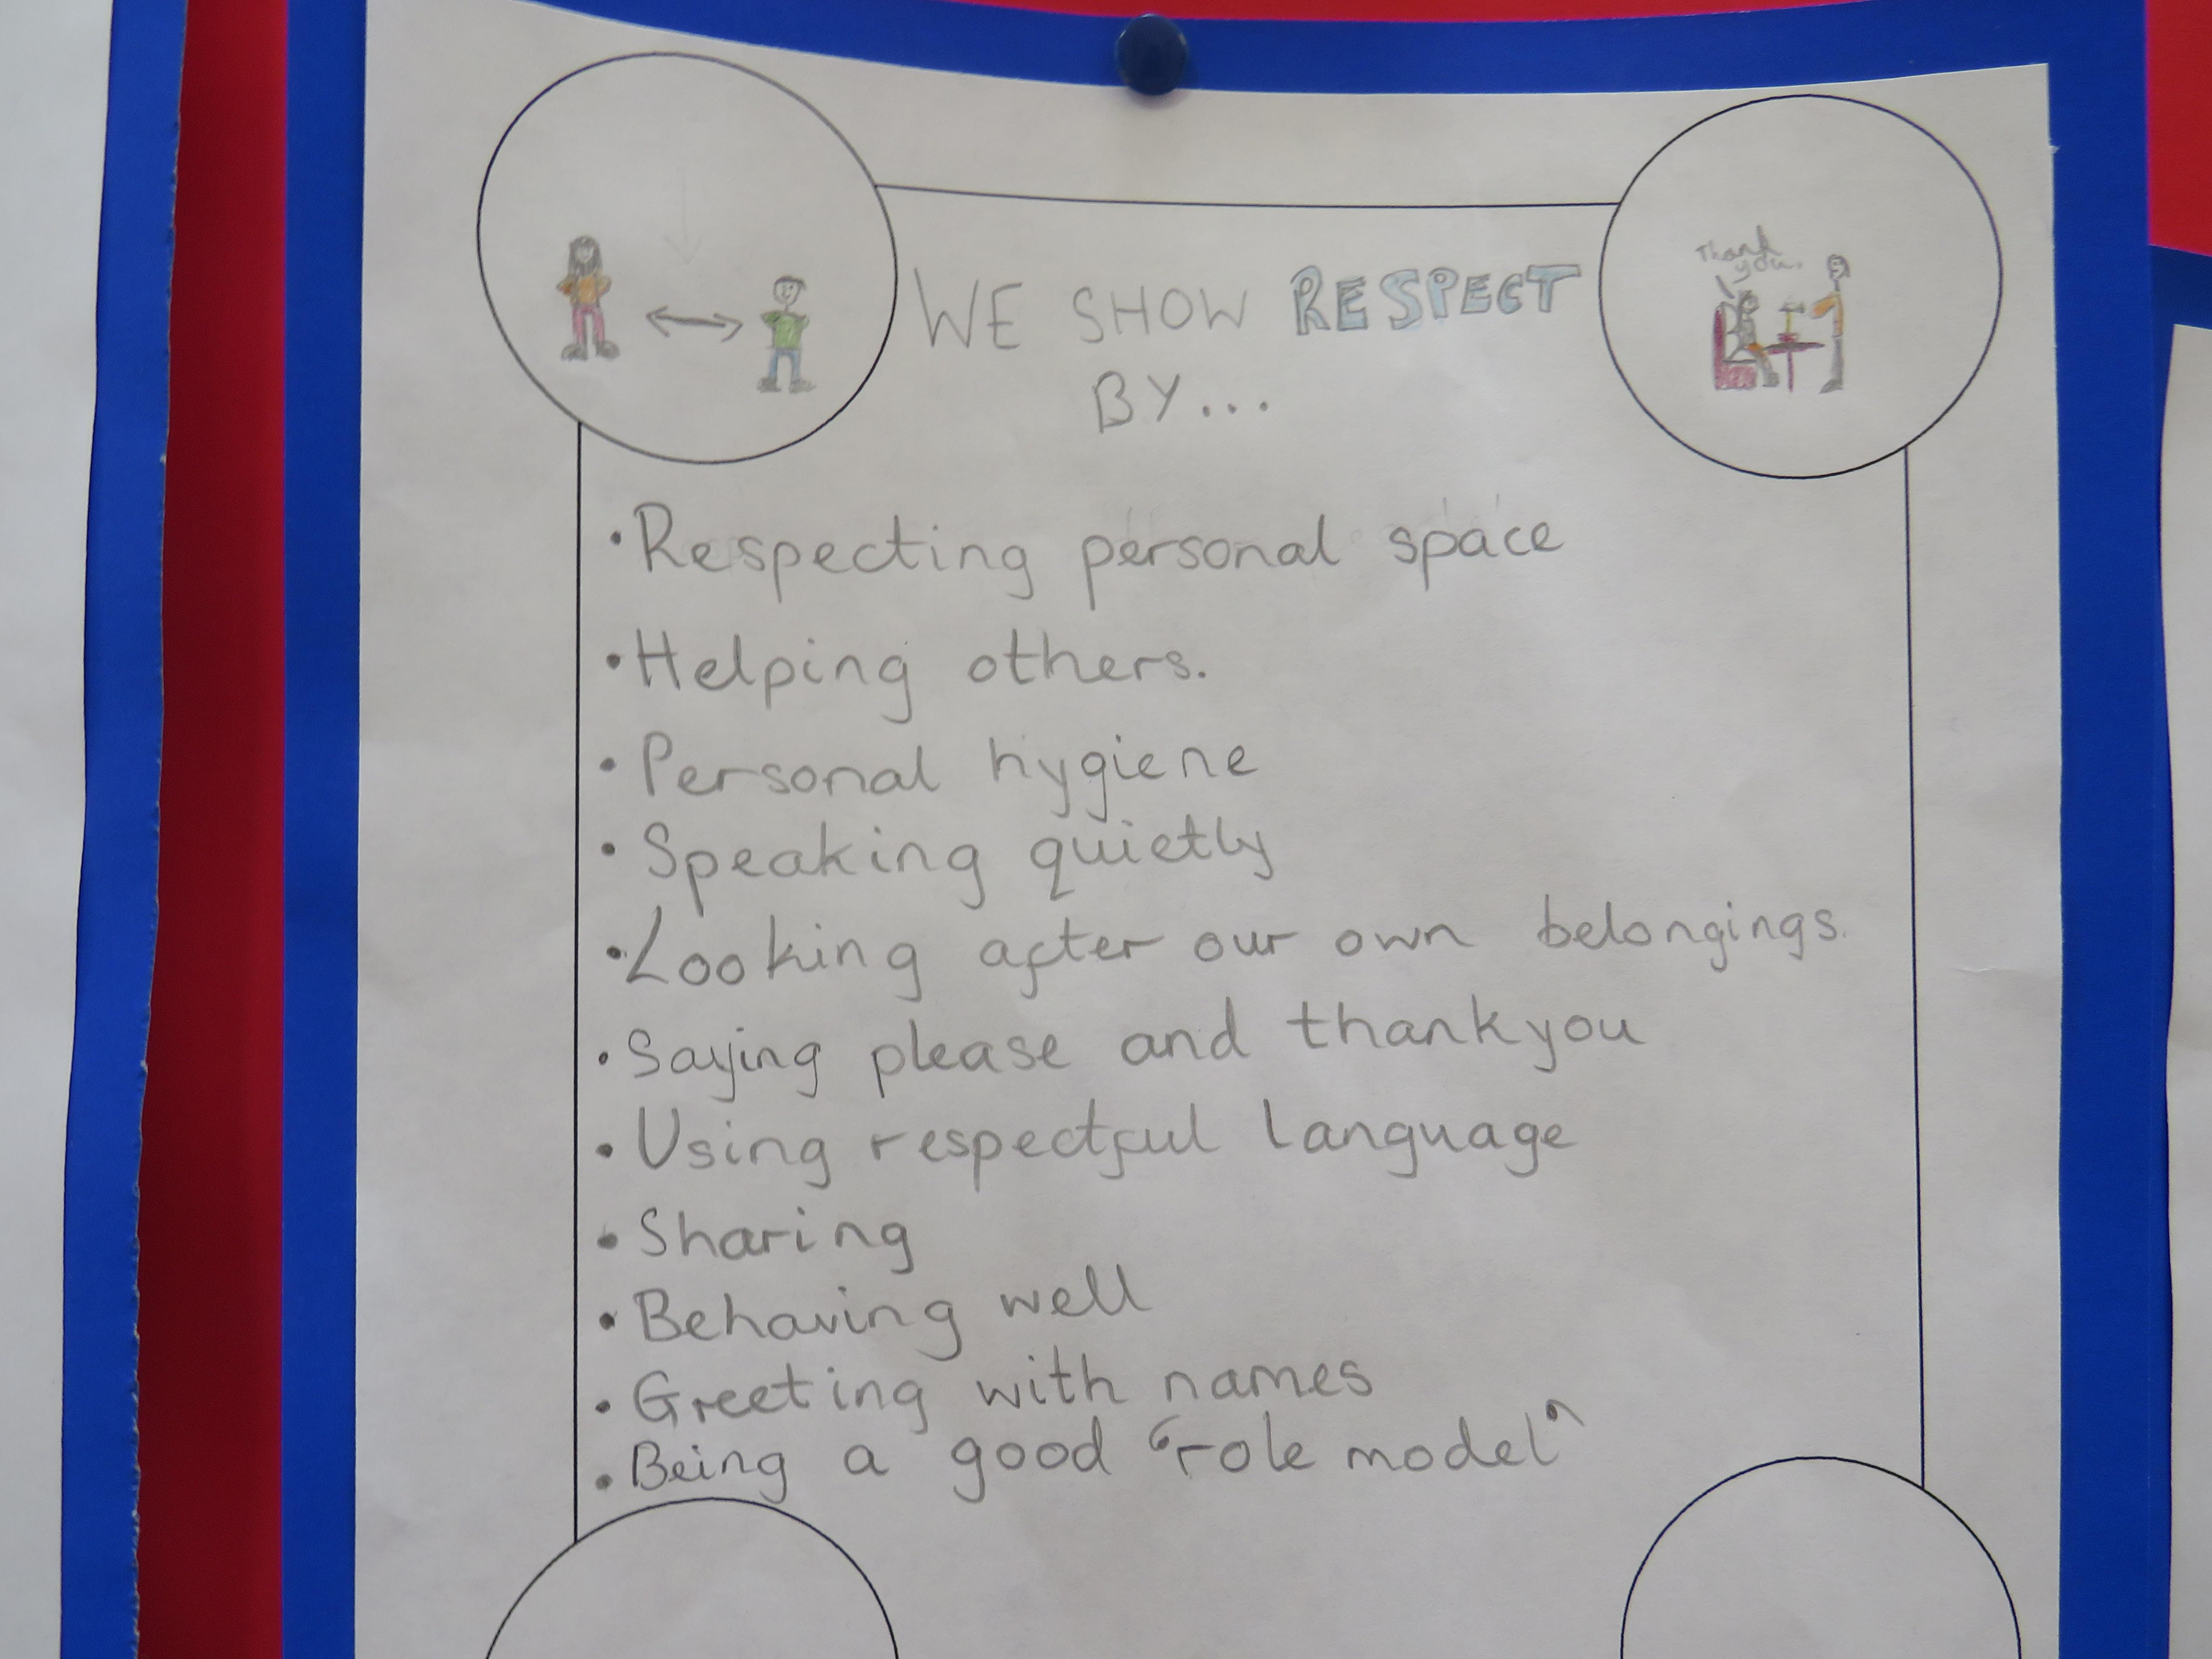 Thank
you.
WE SHOW RESPECT
BY...
•Respecting personal space
•Helping others.
• Personal hygiene
• Speaking quietly
•Looking after our own belongings.
•Saying please and thankyou
• Using respectful language
• Sharing
• Behaving well
• Greeting with names
• Being a good “role model”